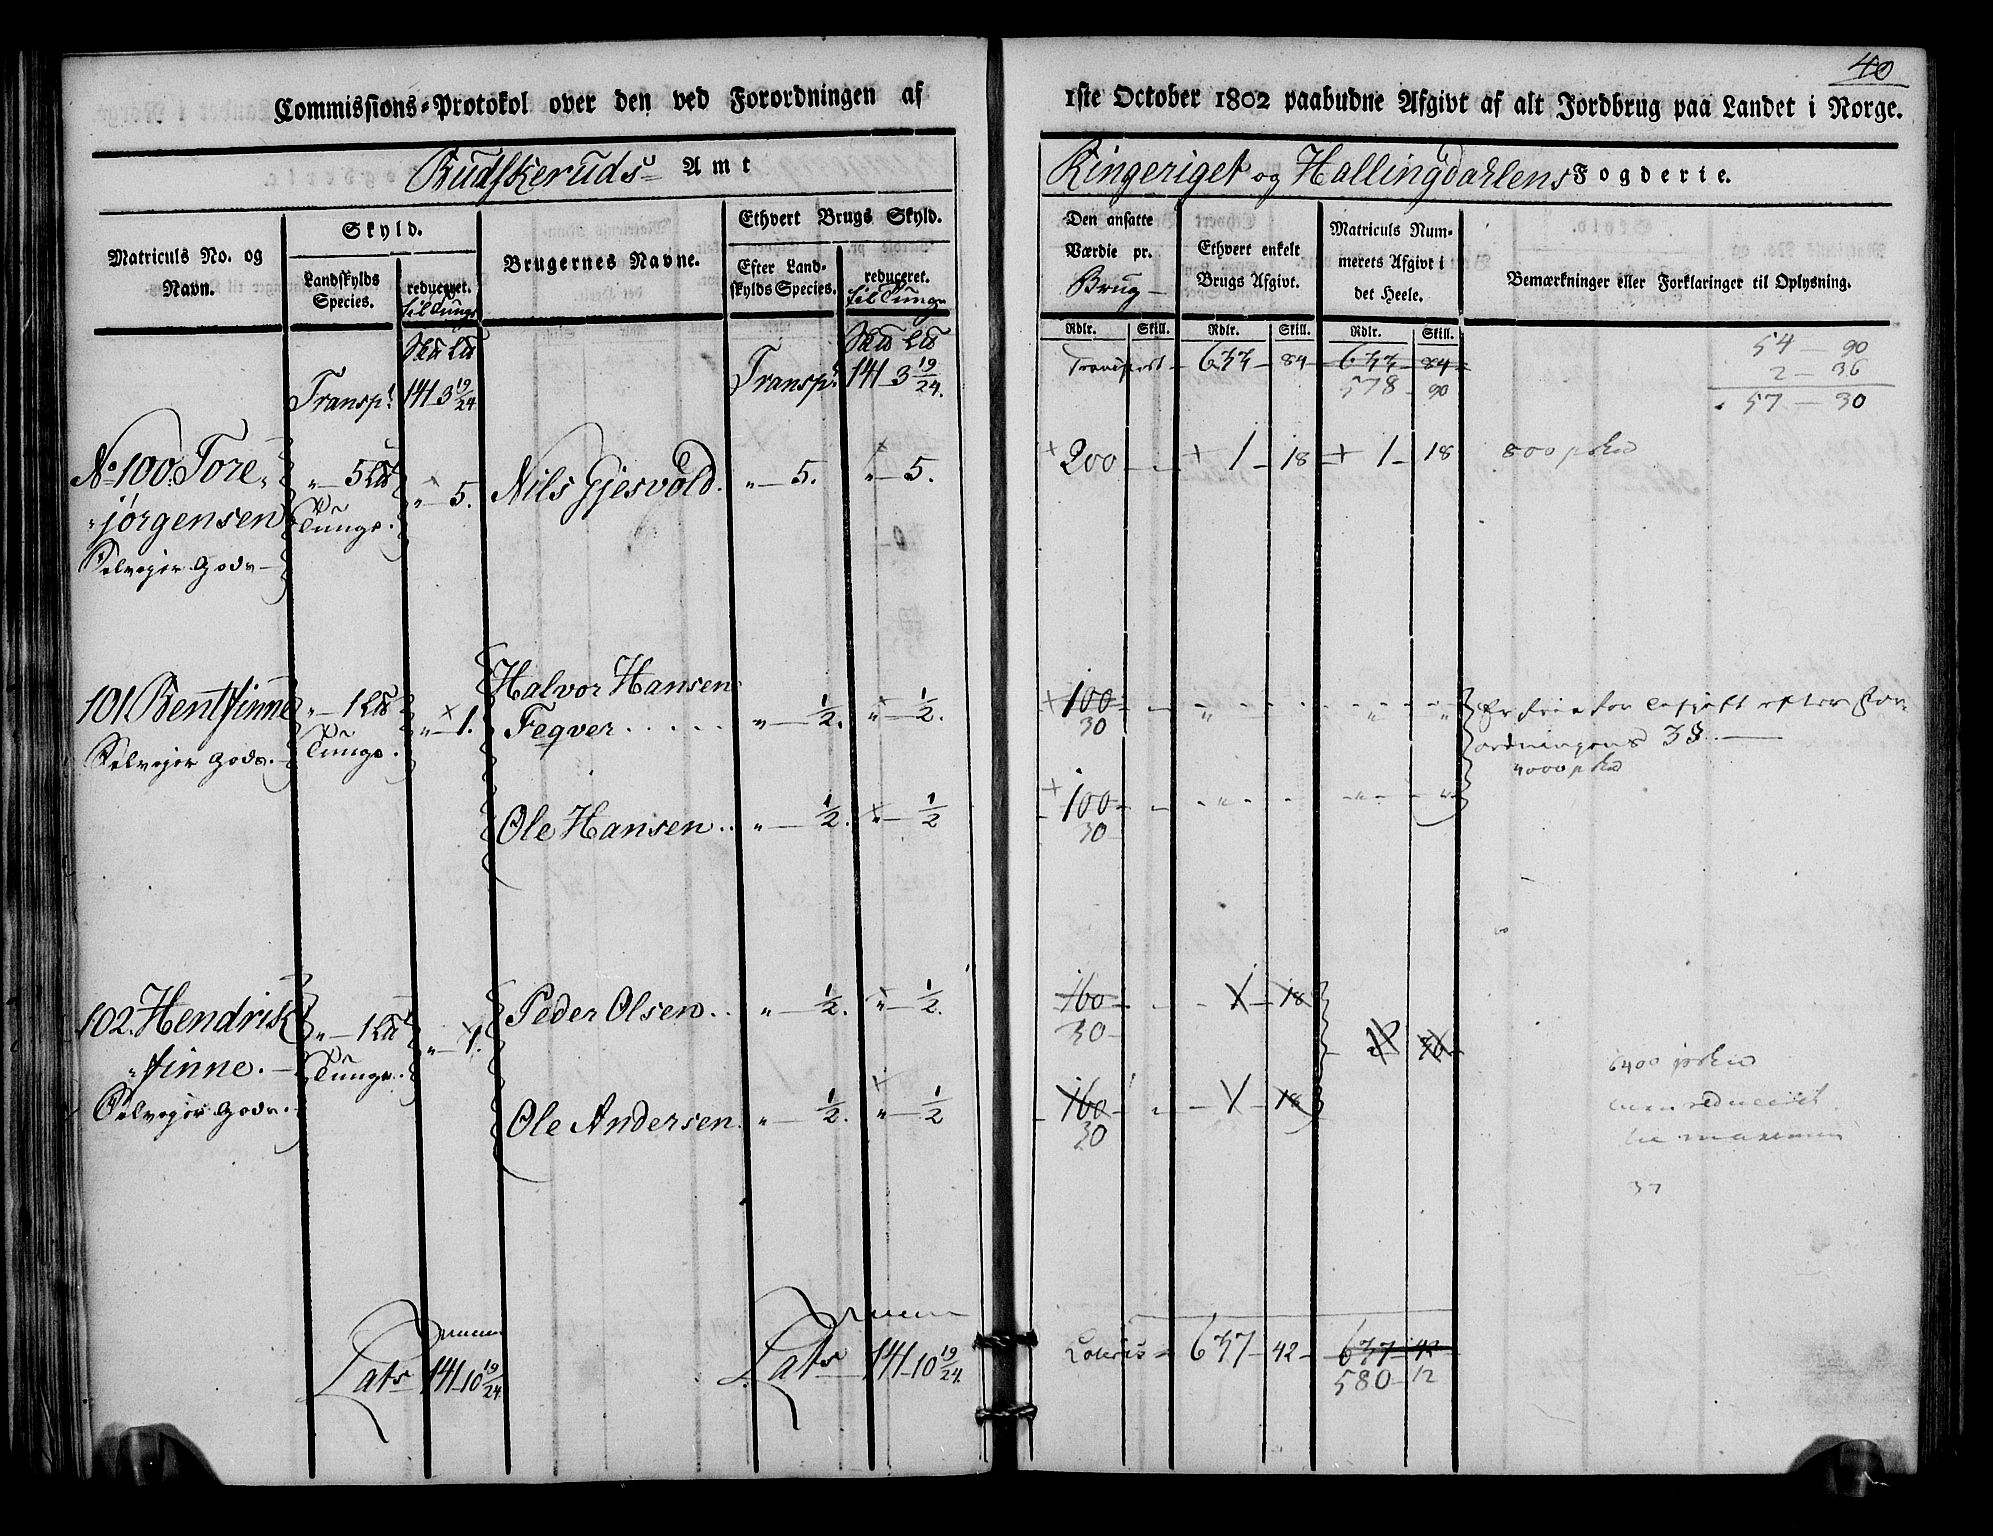 40
Commissions-Protokol over den ved Forordningen af 1ste October 1802 paabudne Afgivt af alt Jordbrug paa Landet i Norge.
Budskeruds Amt
Ringeriget og Hallingdahlens Fogderie.
Matriculs No. og Navn.
Skyld.
Landskylds Species.
reduceret.
til Tunge
Brugernes Navne.
Ethvert Brugs Skyld.
Efter Landskylds Species.
reduceret.
til Tunge
Den ansatte Værdie pr. Brug
Ethvert enkelt Brugs Afgivt.
Matriculs Nummerets Afgivt i det Heele.
Bemærkninger eller Forklaringer til Oplysning.
Rdlr. Skill. Rdlr. Skill. Rdlr. Skill.
Transpt. 141 3 19/24
Transpt. 141 3 19/24.
Transport 633 84 633 84
578 90
54 - 90
2 - 36
57 - 30
No 100. Tore-
jörgensen
Selveyer Gods
" 5 L℔
Tunge.
" 5.
Nils Gjesvold. " 5. " 5.
200 - 1 - 18 - 1 - 18
800 p
101 Bentfinne
Selveyer Gods.
" 1 L℔
Tunge.
" 1.
Halvor Hansen
Feqver . . . . . " 1/2. " 1/2.
100
30
4000 p
Ole Hansen . . " 1/2. " 1/2
100
30
102. Hendrik
finne.
Selveyer Gods.
" 1 L℔
Tunge.
" 1.
Peder Olsen . . " 1/2. " 1/2.
160 1 - 18
30
2 36
6400 p
reduceret
Ole Andersen. " 1/2. " 1/2
160 1 - 18
30
Lats 141 10 19/24
Lats 141 10 19/24.
Lateris 637 - 42 - 637 - 42
580 - 12